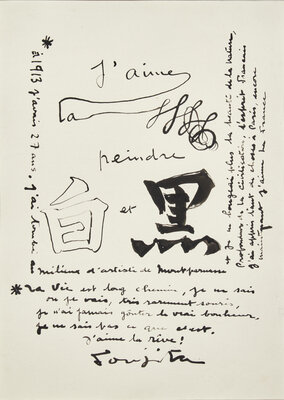 J'aime
la
peindre
白 et 黒
* à 1913 j'avais 27 ans, j'ai tombé au
milieu d'artiste de Montparnasse
* La vie est long chemin, je ne sais
où je vais, très rarement souris,
je n'ai jamais goûter le vrai bonheur,
je ne sais pas ce que c'est.
J'aime la rêve!
* Je compris plus la beauté de la nature,
Profondeur de la civilisation, l'esprit Français
J'ai appris tant de choses à Paris, encore
J'aime la France
Foujita